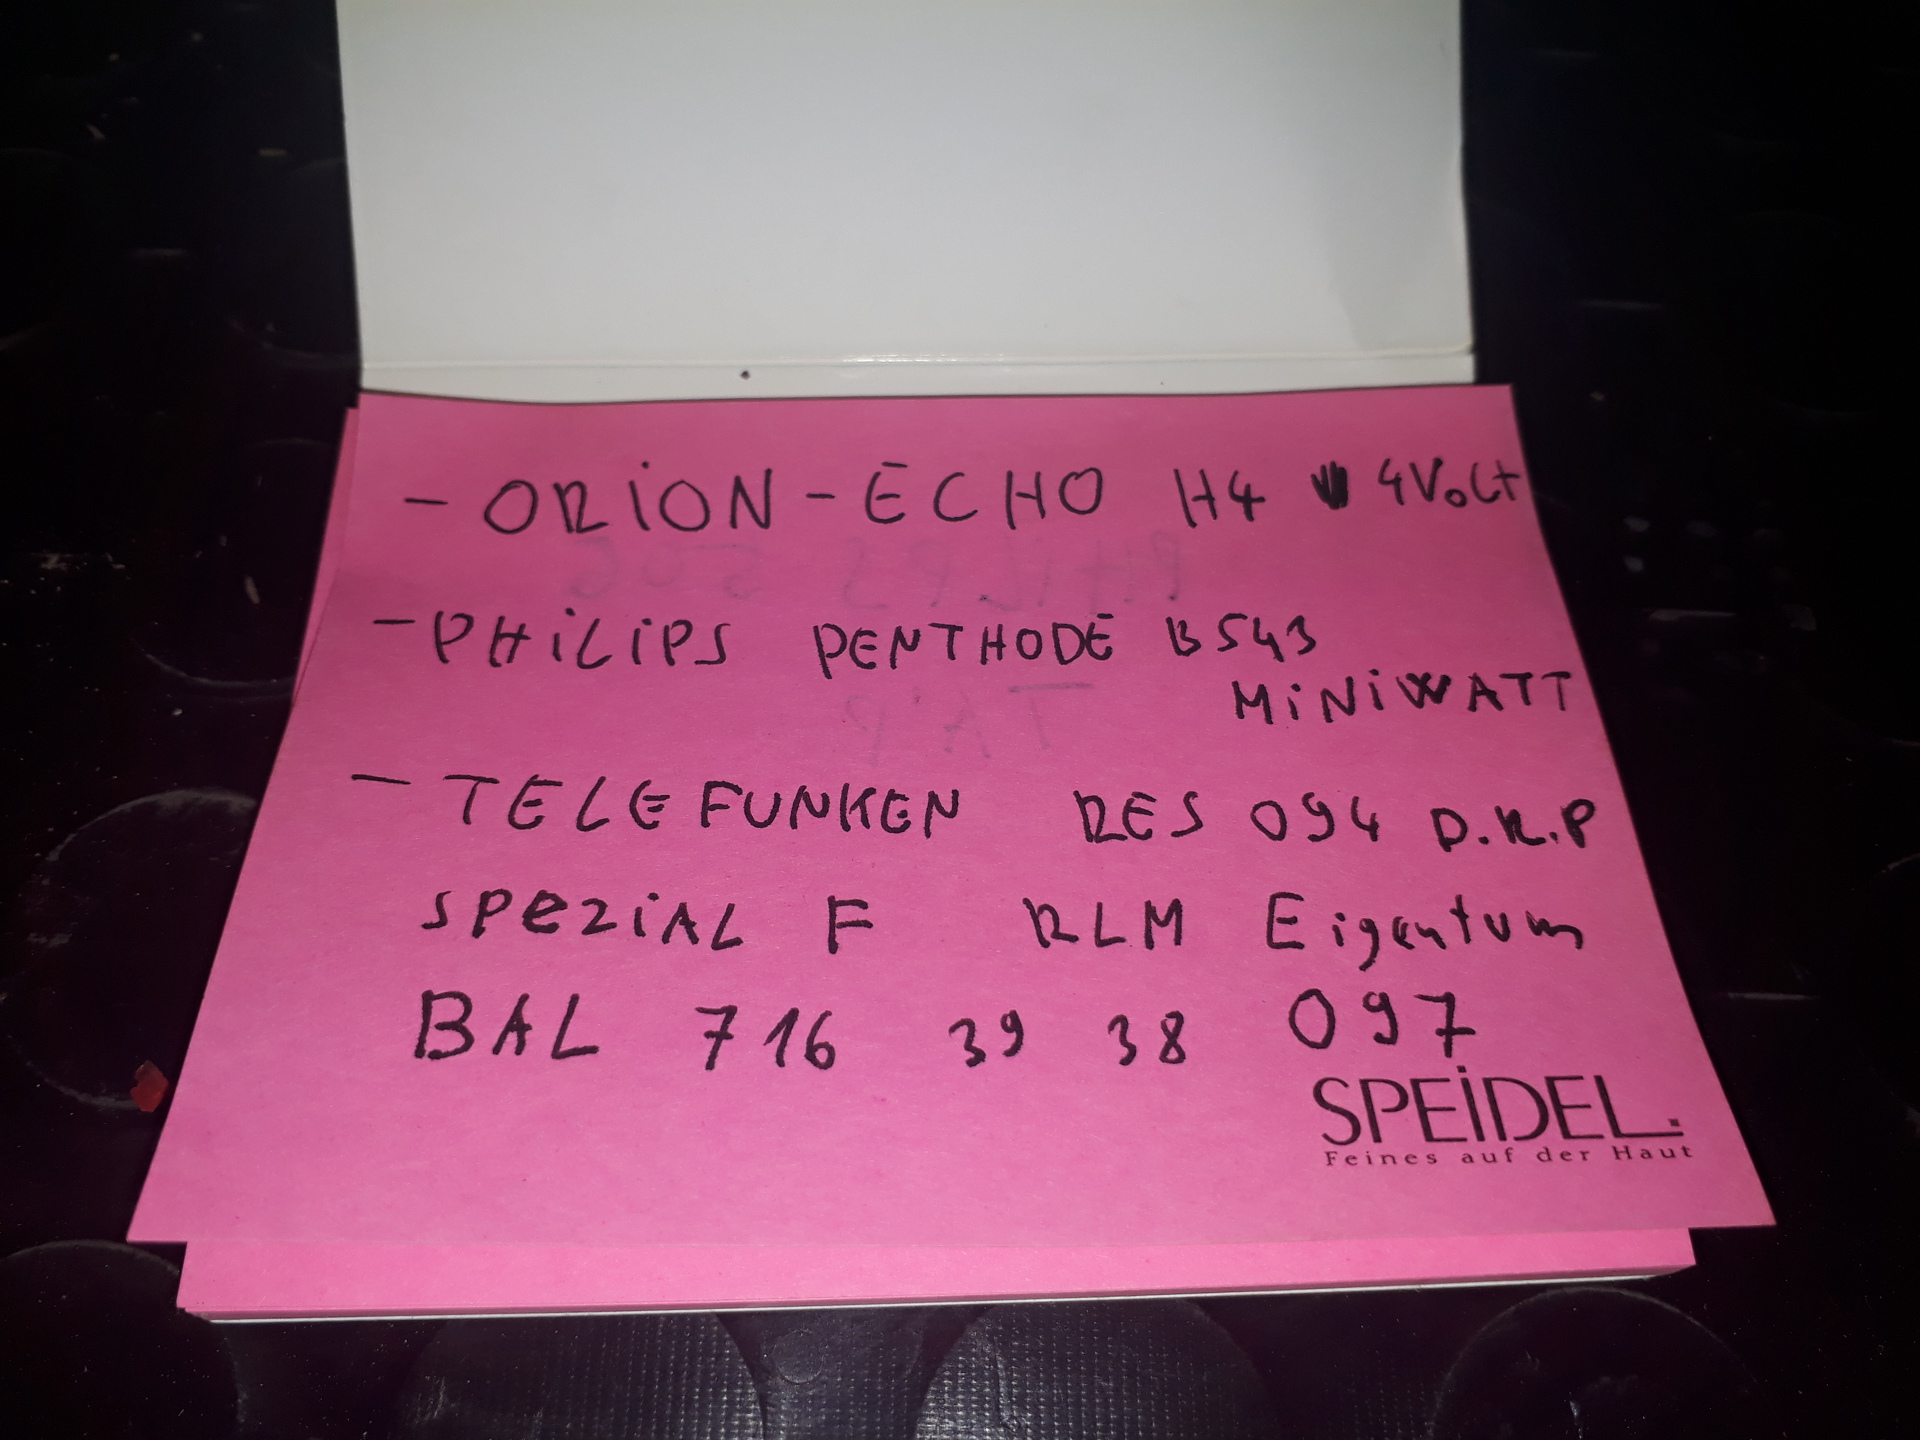 - ORiON - ECHO H4 4Volt
- PHiLiPS PENTHODE B543
MiNiWATT
- TELEFUNKEN RES 094 D.R.P
SPeZiAL F RLM Eigentum
BAL 716 39 38 097
SPEiDEL.
Feines auf der Haut